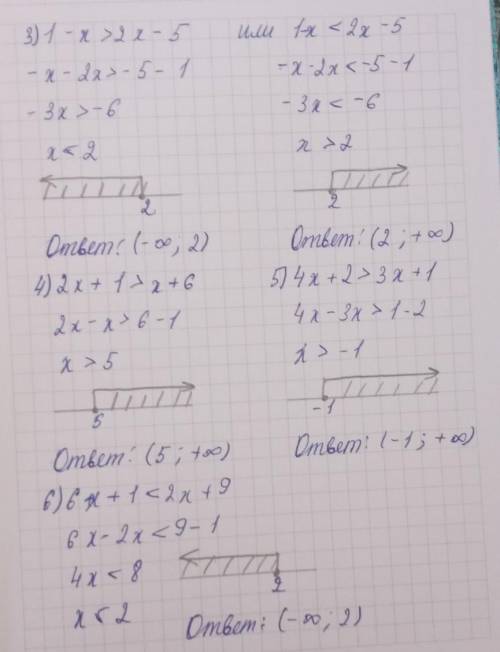 3) 1 - x > 2x - 5
- x - 2x > - 5 - 1
- 3x > - 6
x < 2
2
Ответ: (-∞; 2)
или 1-x < 2x - 5
-x - 2x < -5 - 1
- 3x < -6
x > 2
2
Ответ: (2; +∞)
4) 2x + 1 > x + 6
2x - x > 6 - 1
x > 5
5
Ответ: (5; +∞)
5) 4x + 2 > 3x + 1
4x - 3x > 1 - 2
x > - 1
-1
Ответ: (-1; +∞)
6) 6x + 1 < 2x + 9
6x - 2x < 9 - 1
4x < 8
x < 2
2
Ответ: (-∞; 2)